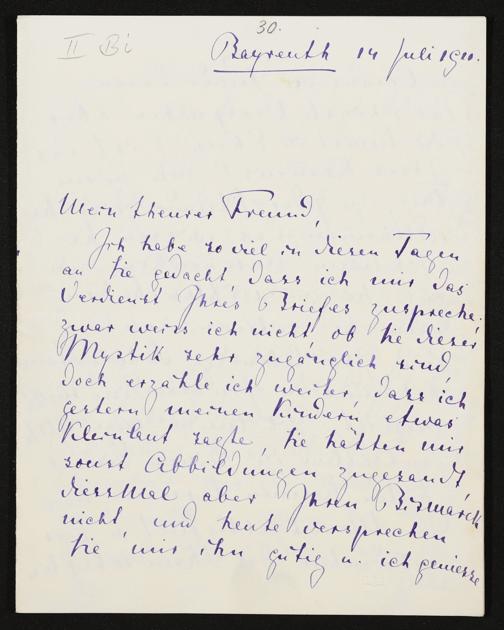 30.
II Bi
Bayreuth 14 Juli 1911.
Mein theurer Freund,
Ich habe so viel in diesen Tagen
an Sie gedacht dass ich mir das
Verdienst Ihres Briefes zuspreche;
zwar weiss ich nicht, ob Sie dieser
Mystik sehr zugänglich sind,
doch erzähle ich weiter, dass ich
gestern meinen Kindern etwas
kleinlaut sagte, Sie hätten mir
sonst Abbildungen zugesandt,
diessmal aber Ihren Bismarck
nicht, und heute versprechen
Sie mir ihn gütig u. ich geniesse